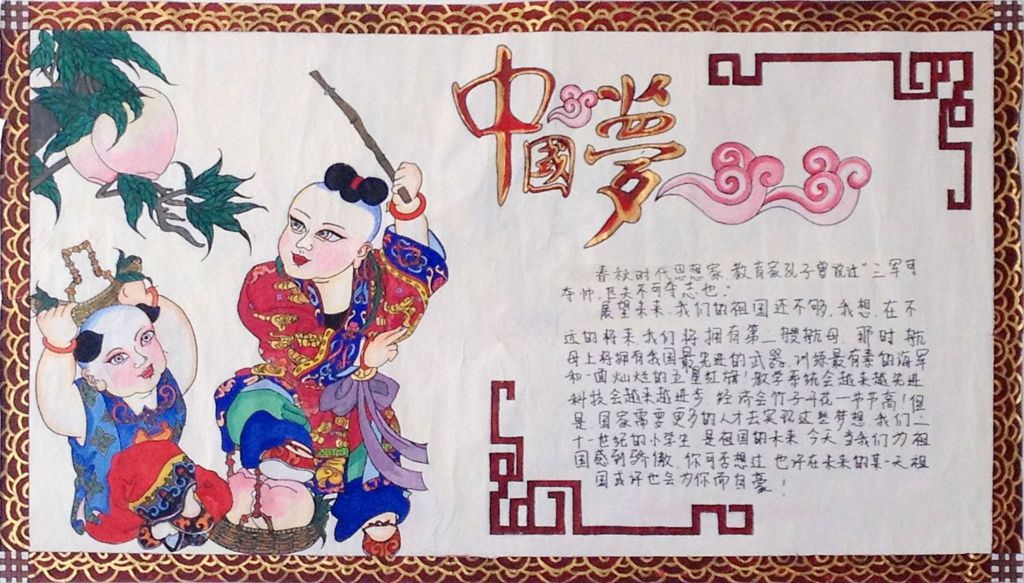 中国梦
春秋时代思想家教育家孔子曾说过"三军可
夺帅,匹夫不可夺志也。
展望未来,我们的祖国还不够,我想,在不
远的将来,我们将拥有第二艘航母,那时航
母上将拥有我国最先进的武器,训练最有素的海军
和一面灿烂的五星红旗!教学系统会越来越先进
科技会越来越进步,经济会竹子开花一节节高!但
是,国家需要更多的人才去实现这些梦想,我们二
十一世纪的小学生,是祖国的未来,今天,当我们为祖
国感到骄傲,你可否想过,也许在未来的某一天,祖
国或许也会为你而自豪!